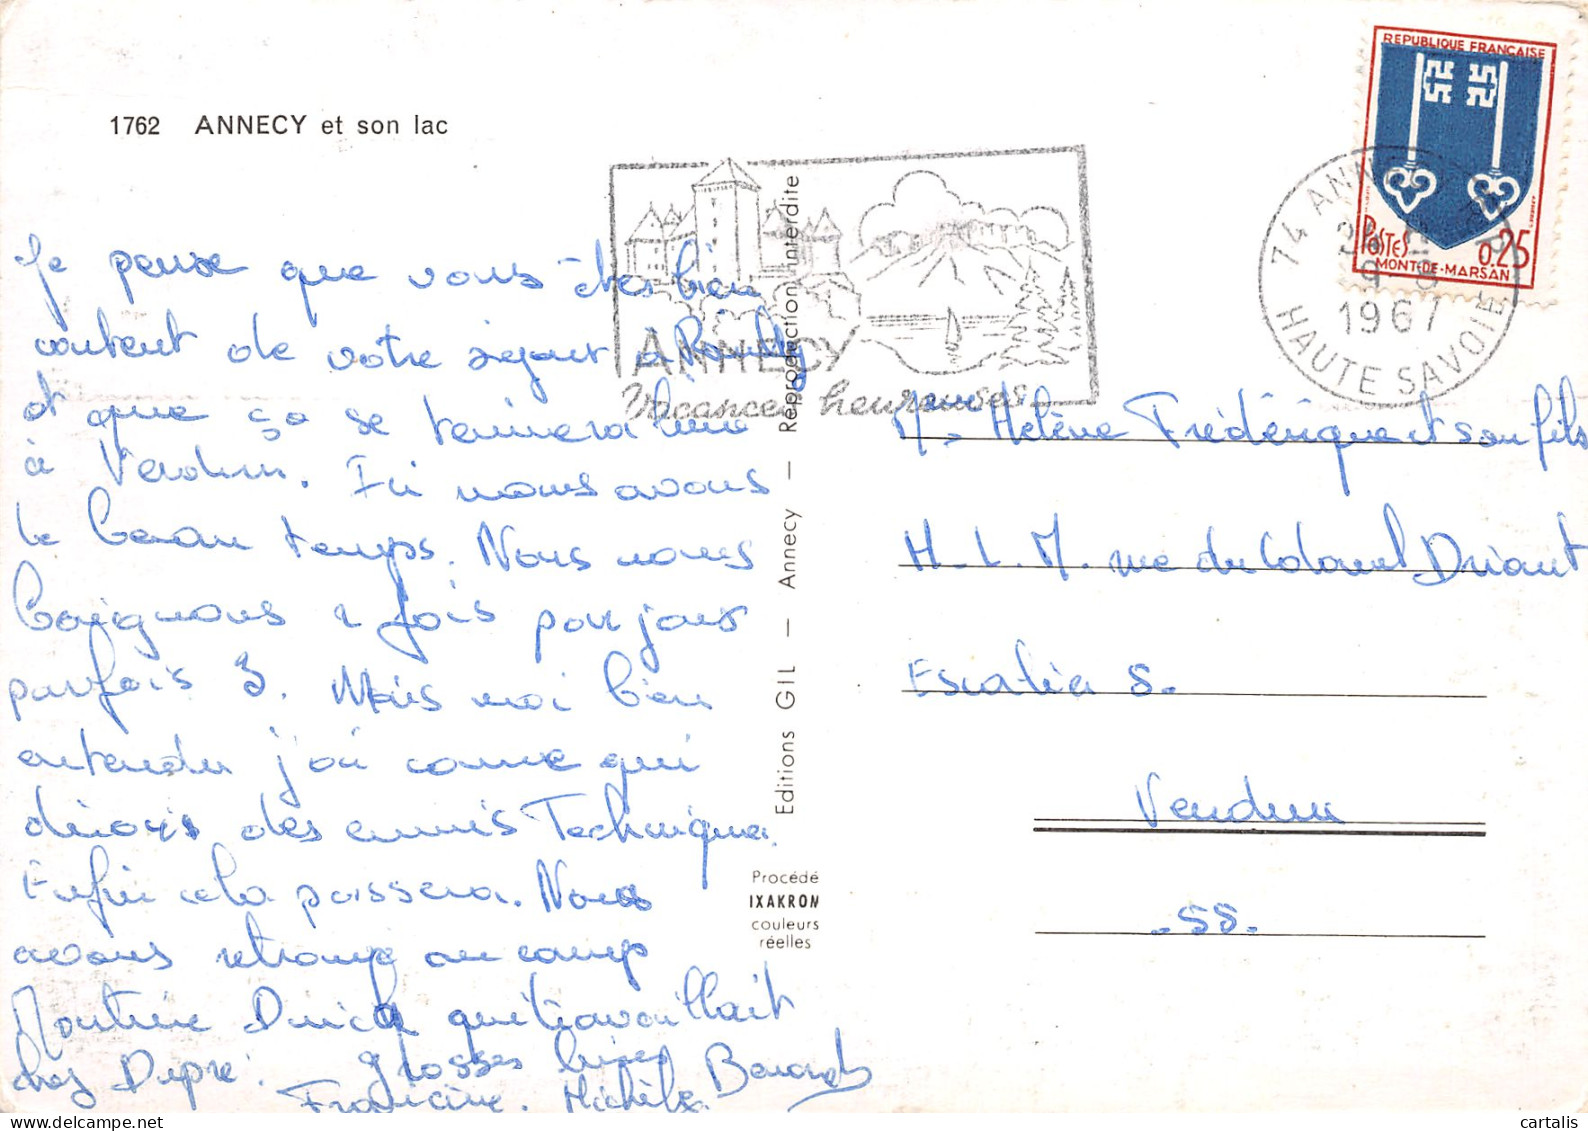 1762 ANNECY et son lac
Je pense que vous êtes bien
content de votre séjour à
et que ça se terminera bien
à Verdun. Ici nous avons
le beau temps. Nous nous
baignons 2 fois par jour
parfois 3. Mais moi bien
entendu j'ai comme qui
dirais des ennuis Techniques.
Enfin cela passera. Nous
avons retrouvé au camp
Martine qui travaillait
chez Dupré. grosses bises
Francine. Michèle. Bernard
Editions GIL — Annecy — Reproduction interdite
Procédé
IXAKROM
couleurs
réelles
ANNECY
Vacances heureuses
REPUBLIQUE FRANÇAISE
POSTES 0,25
MONT-DE-MARSAN
74 ANNECY
1967
HAUTE SAVOIE
Hélène Frédérique et son fils
H.L.M. rue du Colonel Driant
Escalier 8.
Verdun
-55.
cartalis